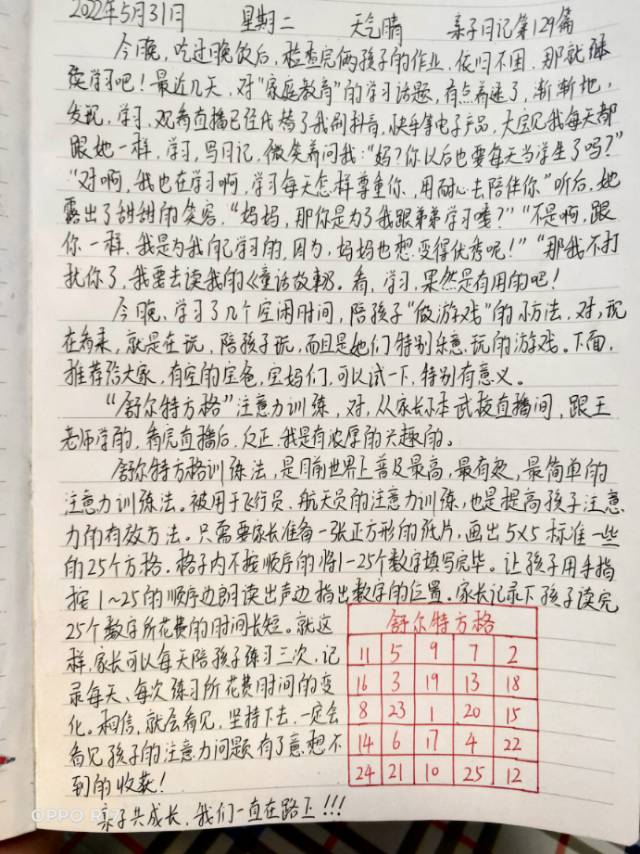 2022年5月31日 星期二 天气晴 亲子日记第129篇
今晚，吃过晚饭后，检查完俩孩子的作业，依归不困，那就继
续学习吧！最近几天，对"家庭教育"的学习话题，有点着迷了，渐渐地，
发现，学习，观看直播已经代替了我刷抖音，快手等电子产品，大宝见我每天都
跟她一样，学习，写日记，微笑着问我："妈？你以后也要每天当学生了吗？"
"对啊，我也在学习啊，学习每天怎样尊重你，用耐心去陪伴你"听后，她
露出了甜甜的笑容，"妈妈，那你是为了我跟弟弟学习喽？""不是啊，跟
你一样，我是为我自己学习的，因为，妈妈也想变得优秀呢！""那我不打
扰你了，我要去读我的《童话故事》。看，学习，果然是有用的吧！
今晚，学习了几个空闲时间，陪孩子"做游戏"的小方法，对，现
在看来，就是在玩，陪孩子玩，而且是她们特别乐意玩的游戏。下面，
推荐给大家，有空的宝爸，宝妈们，可以试一下，特别有意义。
"舒尔特方格"注意力训练，对，从家长学本武校直播间，跟王
老师学的，看完直播后，反正，我是有浓厚的兴趣的。
舒尔特方格训练法，是目前世界上普及最高，最有效，最简单的
注意力训练法。被用于飞行员，航天员的注意力训练，也是提高孩子注意
力的有效方法。只需要家长准备一张正方形的纸片，画出5X5标准一些
的25个方格。格子内不按顺序的将1-25个数字填写完毕。让孩子用手指
按1~25的顺序边朗读出声边指出数字的位置。家长记录下孩子读完
25个数字所花费的时间长短。就这
样，家长可以每天陪孩子练习三次，记
录每天、每次练习所花费时间的变
化。相信，就会看见，坚持下去，一定会
看见孩子的注意力问题有了意想不
到的收获！
亲子共成长，我们一直在路上！！！
舒尔特方格
11 5 9 7 2
16 3 19 13 18
8 23 1 20 15
14 6 17 4 22
24 21 10 25 12
OPPO R